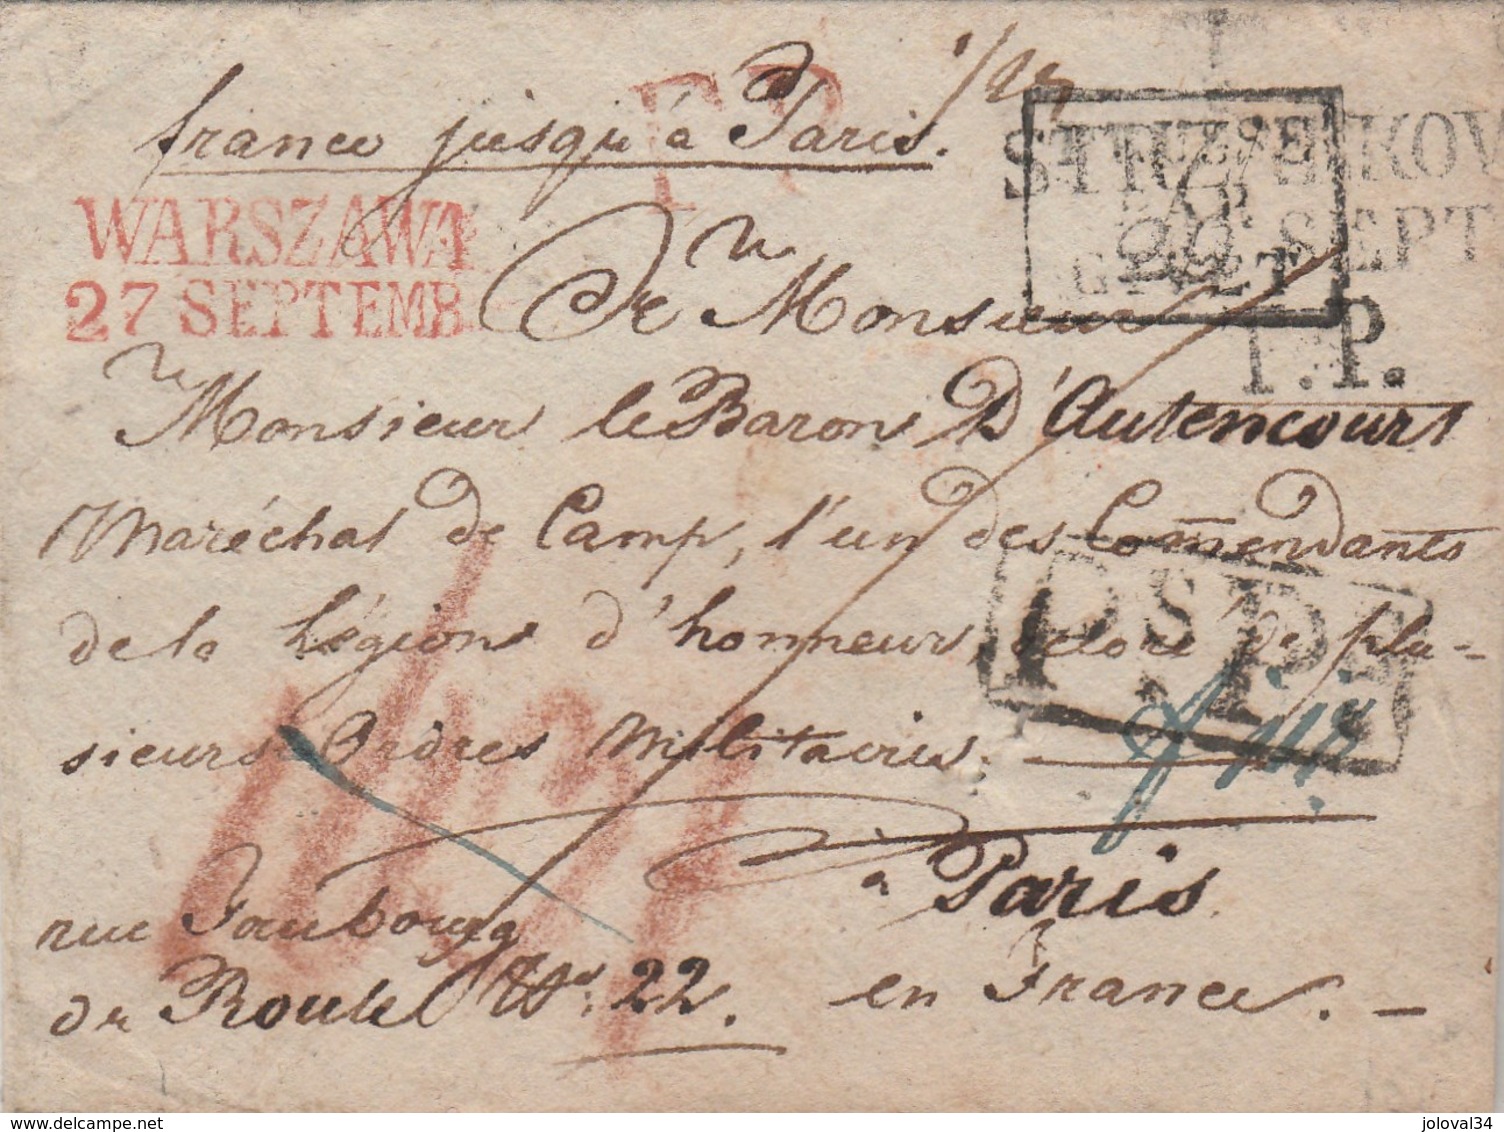 franco jusqu'à Paris.
F P
WARSZAWA
27 SEPTEMB
PAR
GIVET
SEPT
P.P.
De Monsieur
Monsieur le Baron D'Autencourt
Maréchal de Camp, l'un des Com̄endants
de la Légion d'honneur, déloré de plu-
sieurs Ordres Militaires.
à Paris
rue Faubourg
du Roule No. 22. en France. —
joloval34